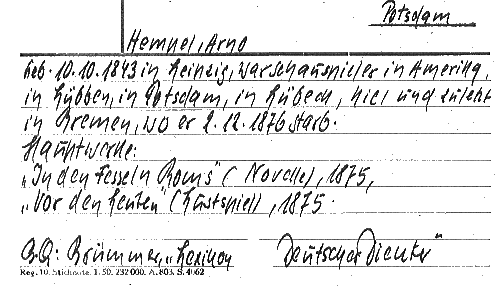 Potsdam
Hempel, Arno
Geb. 10.10.1843 in Leipzig, war Schauspieler in Amerika,
in Lübben, in Potsdam, in Lübeck, Kiel und zuletzt
in Bremen, wo er 2.12.1876 starb.
Hauptwerke:
„In den Fesseln Roms" (Novelle), 1875,
„Vor den Leuten" (Lustspiel), 1875.
Brümmer, „Lexikon Deutscher Dichter"
Reg. 10. Stichworte. I. 50. 232 000. A. 803. S. 4062